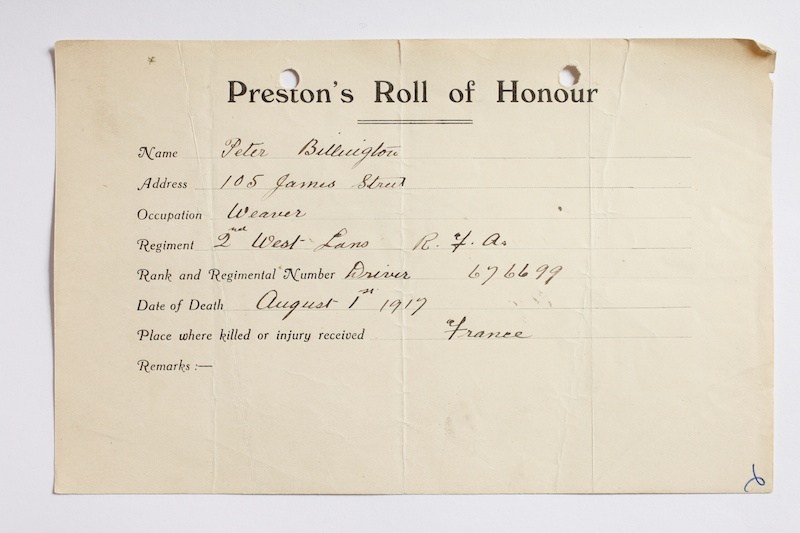 Preston's Roll of Honour
Name Peter Billington
Address 105 James Street
Occupation Weaver
Regiment 2nd West Lans R. F. A.
Rank and Regimental Number Driver 676699
Date of Death August 1st 1917
Place where killed or injury received France
Remarks :—